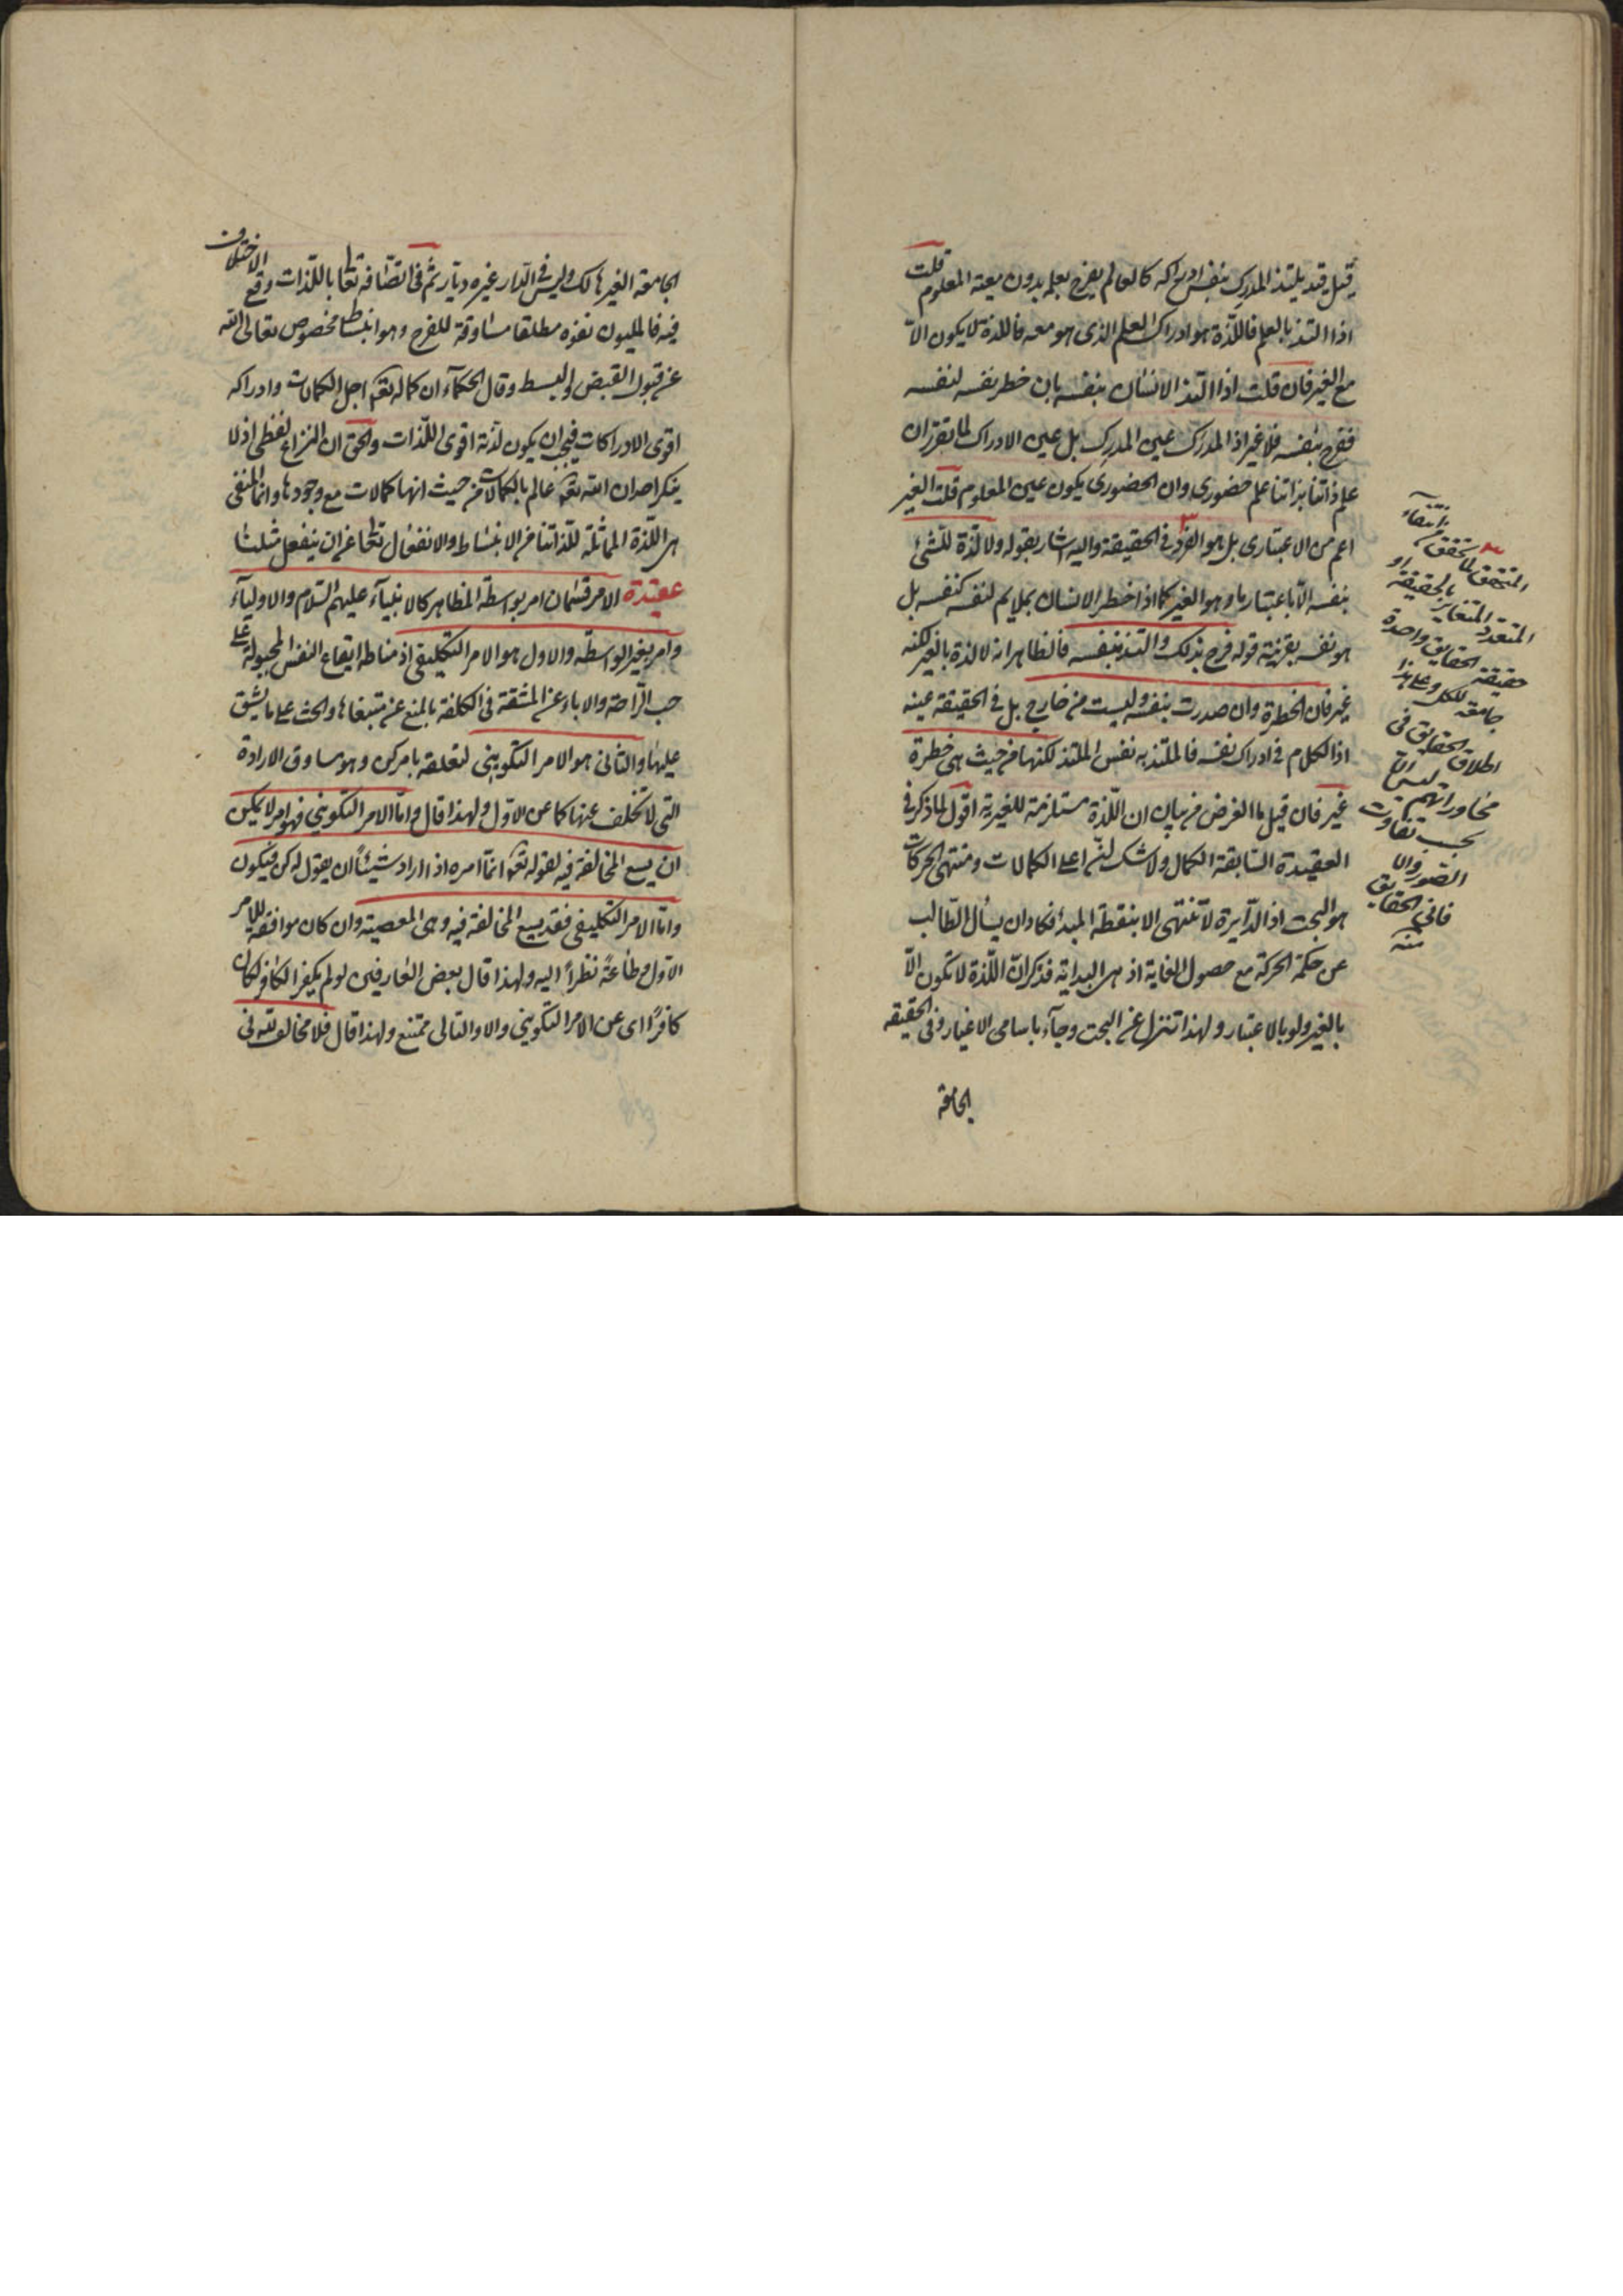 قيل قد يلتذ المدرك بنفس ادراكه كالعالم يفرح بعلمه بدون معية المعلوم قلت
اذا التذ بالعلم فاللذة هو ادراك العلم الذى هو معه فاللذة لا يكون الا
مع الغير فان قلت اذا التذ الانسان بنفسه بان خطر نفسه لنفسه
ففرح بنفسه فلا غير اذ المدرك عين المدرك بل عين الادراك لما تقرر ان
علم ذاتنا بذاتنا علم حضورى وان الحضورى يكون عين المعلوم قلت الغير
اعم من الاعتبارى بل هو الفرد فى الحقيقة واليه اشار بقوله ولا لذة للشئ
بنفسه الا باعتبار ما وهو الغير كما اذا خطر الانسان بملايم لنفسه كنفسه بل
هو نفسه بقرينة قوله فرح بذلك والتذ بنفسه فالظاهر انه لا لذة بالغير لكنه
غير فان الخطرة وان صدرت بنفسه وليست من خارج بل فى الحقيقة عينه
اذ الكلام فى ادراك نفسه فالملتذ به نفس الملتذ لكنها من حيث هى خطرة
غير فان قيل ما الغرض من بيان ان اللذة مستلزمة للغيرية اقول لما ذكر فى
العقيدة السابقة الكمال ولا شك انه اعلى الكمالات ومنتهى الحركات
هو البحت اذ الدايرة لا تنتهى الا بنقطة المبدا فكاد ان يسأل الطالب
عن حكمة الحركة مع حصول الغاية اذ هى البداية فذكر ان اللذة لا تكون الا
بالغير ولو بالاعتبار ولهذا تنزل عن البحت وجآء باسامى الاغيار وفى الحقيقه
الجامعة
المتحقق لما تحقق من انتفاء
المتعدد المتغاير بالحقيقة او
حقيقة الحقايق واحدة
جامعة للكل وعلى هذا
اطلاق الحقايق فى
محاوراتهم ليس الا
بحسب تفاوت
الصور والا
فانى الحقايق
منه
الجامعة الغير هالك وليس فى الدار غيره ديار ثم فى اتصافه تعا باللذات وقع الاختلاف
فيه فالمليون نفوه مطلقا مساوقة للفرح وهو انبساط مخصوص تعالى الله
عن قبول القبض والبسط وقال الحكمآء ان كماله تعالى اجل الكمالات وادراكه
اقوى الادراكات فيجب ان يكون لذته اقوى اللذات والحق ان النزاع لفظى اذ لا
ينكر احد ان الله تعالى عالم بالكمالات من حيث انها كمالات مع وجودها وانما المنفى
هى اللذة المماثلة للذاتنا من الانبساط والانفعال تعا عن ان ينفعل مثلنا
عقيدة الامر قسمان امر بواسطة المظاهر كالانبيآء عليهم السلام والاوليآء
وامر بغير الواسطه والاول هو الامر التكليفى اذ مناطه ايقاع النفس المجبولة على
حب الراحة والاباء عن المشقة فى الكلفة بالمنع عن مبتغاها والحث على ما يشق
عليها والثانى هو الامر التكوينى لتعلقه بامر كن وهو مساوق الارادة
التى لا تتخلف عنها كما عن الاول ولهذا قال واما الامر التكوينى فهو امر لا يمكن
ان يسع المخالفة فيه لقوله تعالى انما امره اذا اراد شيئا ان يقول له كن فيكون
واما الامر التكليفى فقد يسع المخالفة فيه وهى المعصية وان كان موافقة للامر
الاول وطاعة نظرا اليه ولهذا قال بعض العارفين لو لم يكفر الكافر لكان
كافرا اى عن الامر التكوينى والا والتالى ممتنع ولهذا قال فلا مخالف لله فى